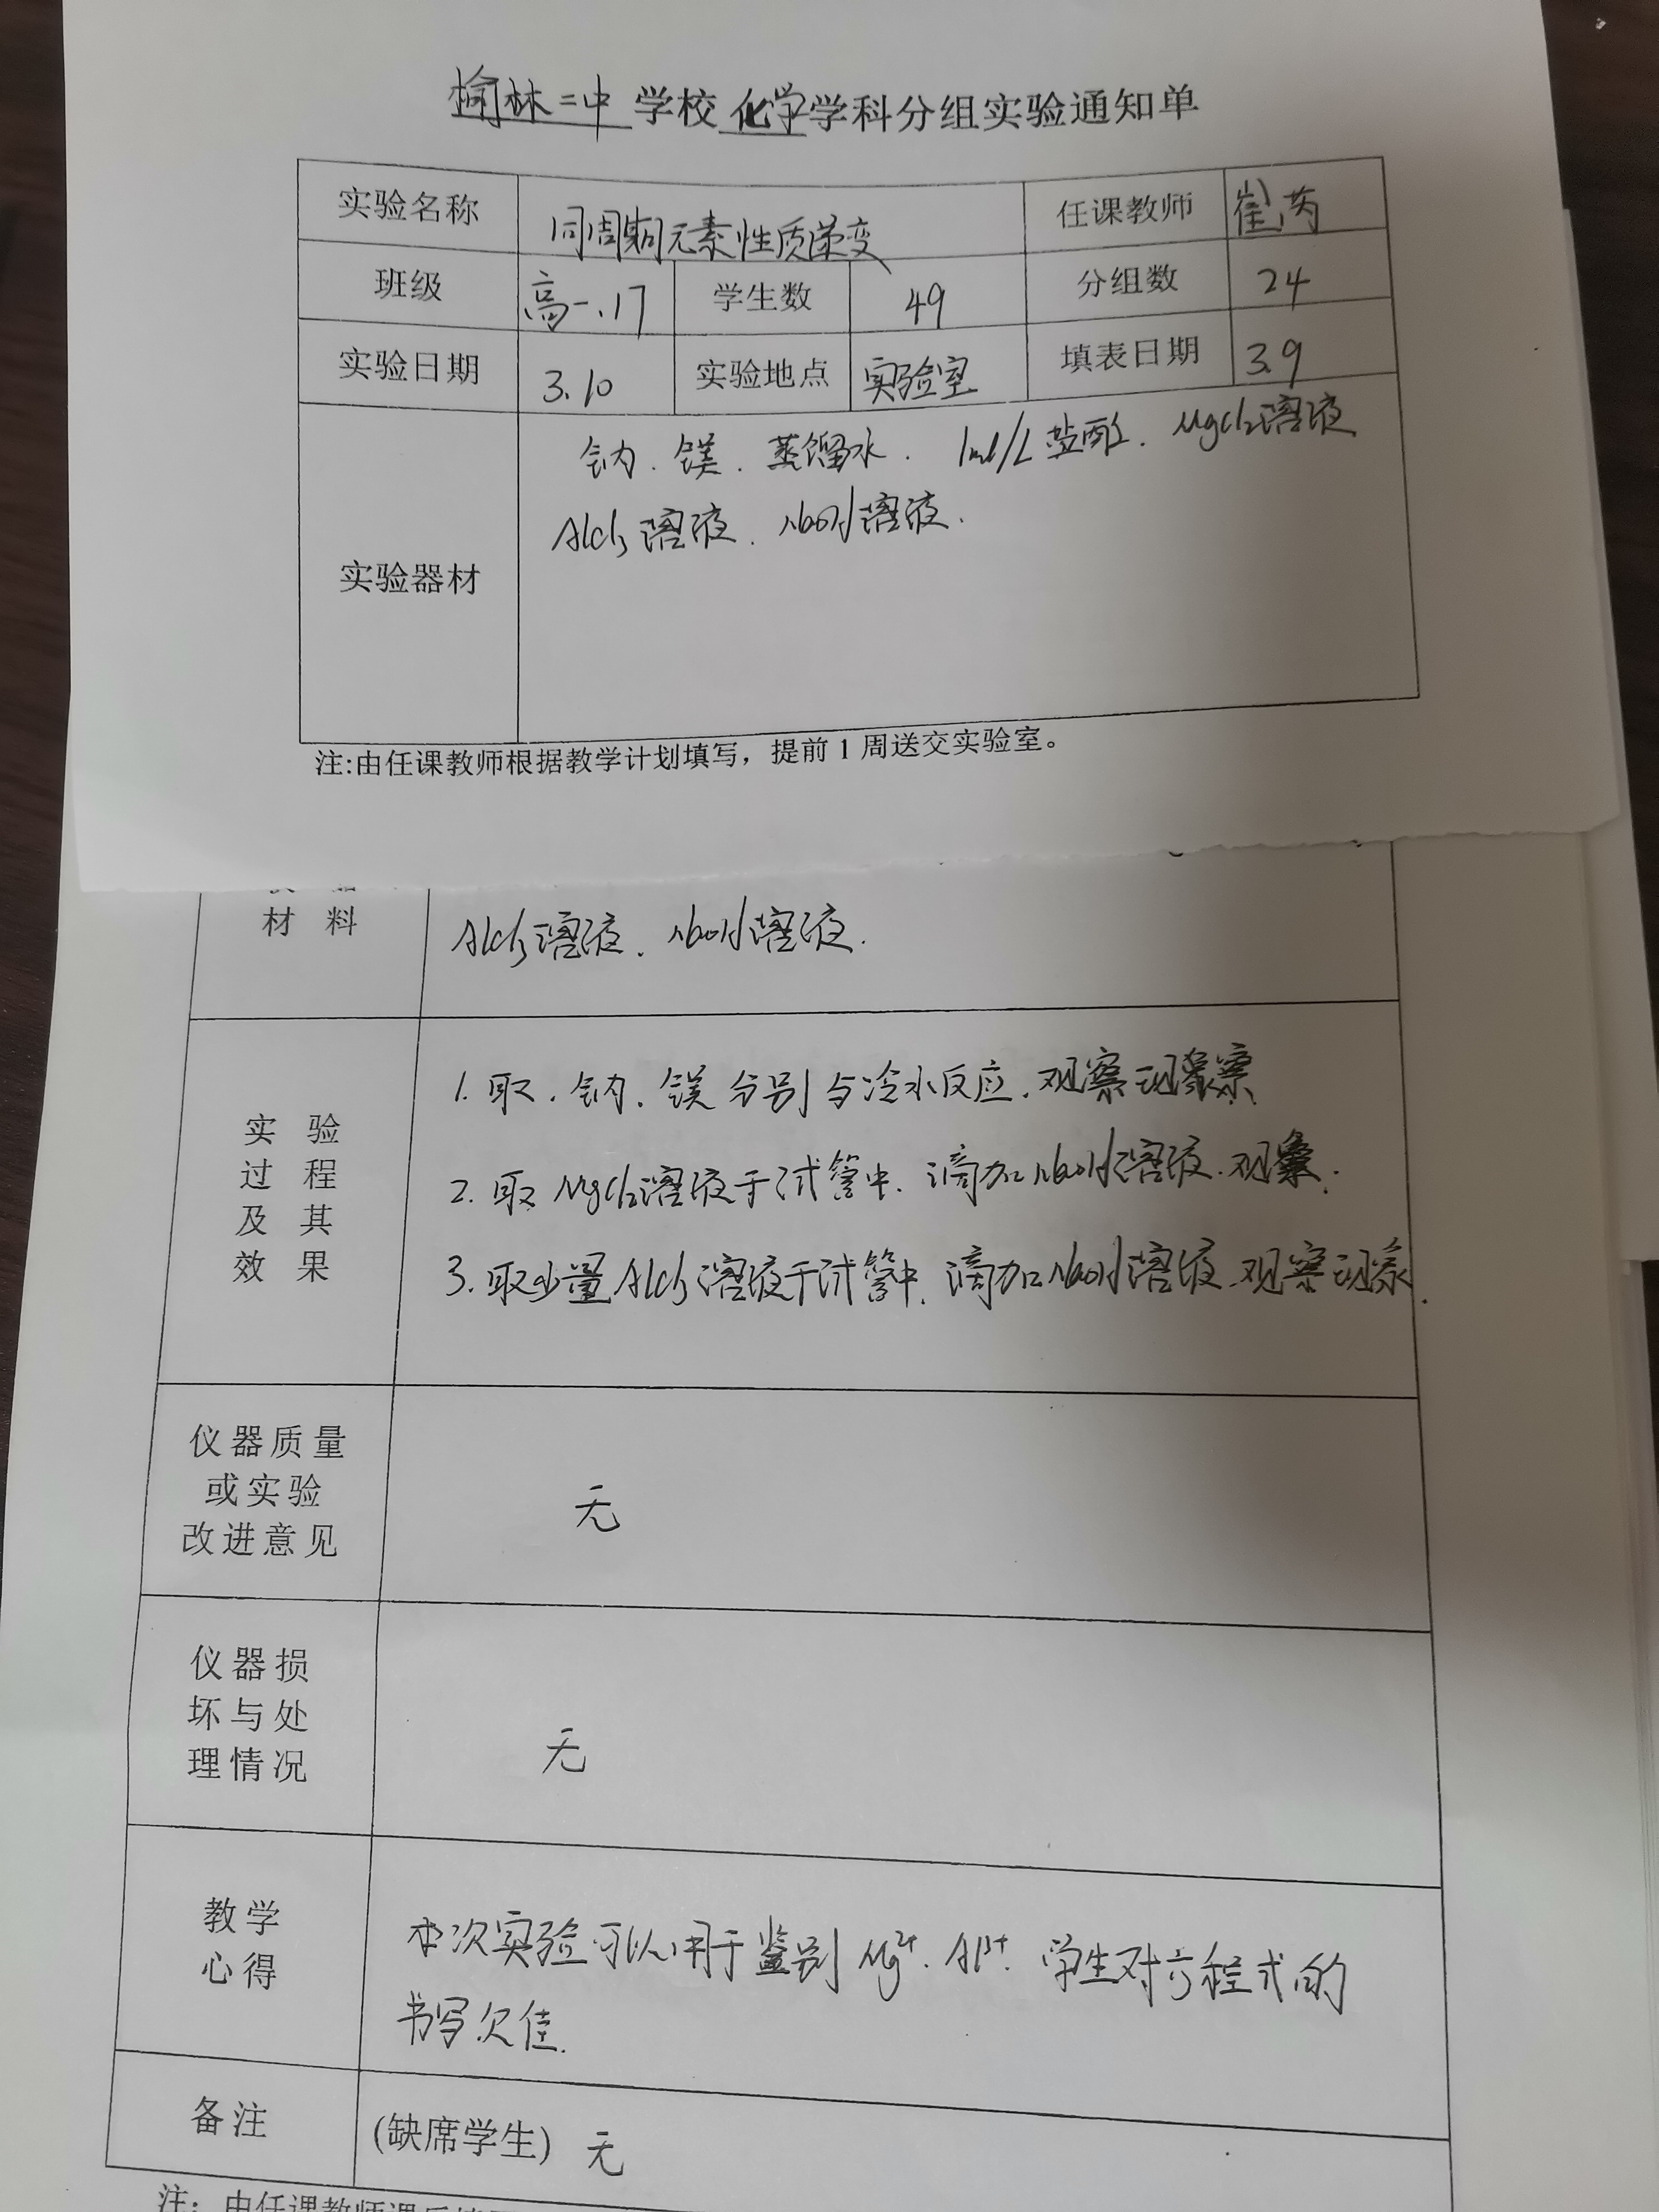 榆林二中学校化学学科分组实验通知单
实验名称 同周期元素性质递变 任课教师 崔芮
班级 高一.17 学生数 49 分组数 24
实验日期 3.10 实验地点 实验室 填表日期 3.9
实验器材
钠、镁、蒸馏水、1mol/L盐酸、MgCl2溶液
AlCl3溶液、NaOH溶液.
注:由任课教师根据教学计划填写，提前1周送交实验室。
材料
AlCl3溶液、NaOH溶液.
实验
过程
及其
效果
1.取、钠、镁分别与冷水反应、观察现象
2.取MgCl2溶液于试管中、滴加NaOH溶液.观象.
3.取少量AlCl3溶液于试管中、滴加NaOH溶液.观察现象.
仪器质量
或实验
改进意见
无
仪器损
坏与处
理情况
无
教学
心得
本次实验可以用于鉴别Mg2+、Al3+.学生对方程式的
书写欠佳.
备注 (缺席学生) 无
注：由任课教师课后